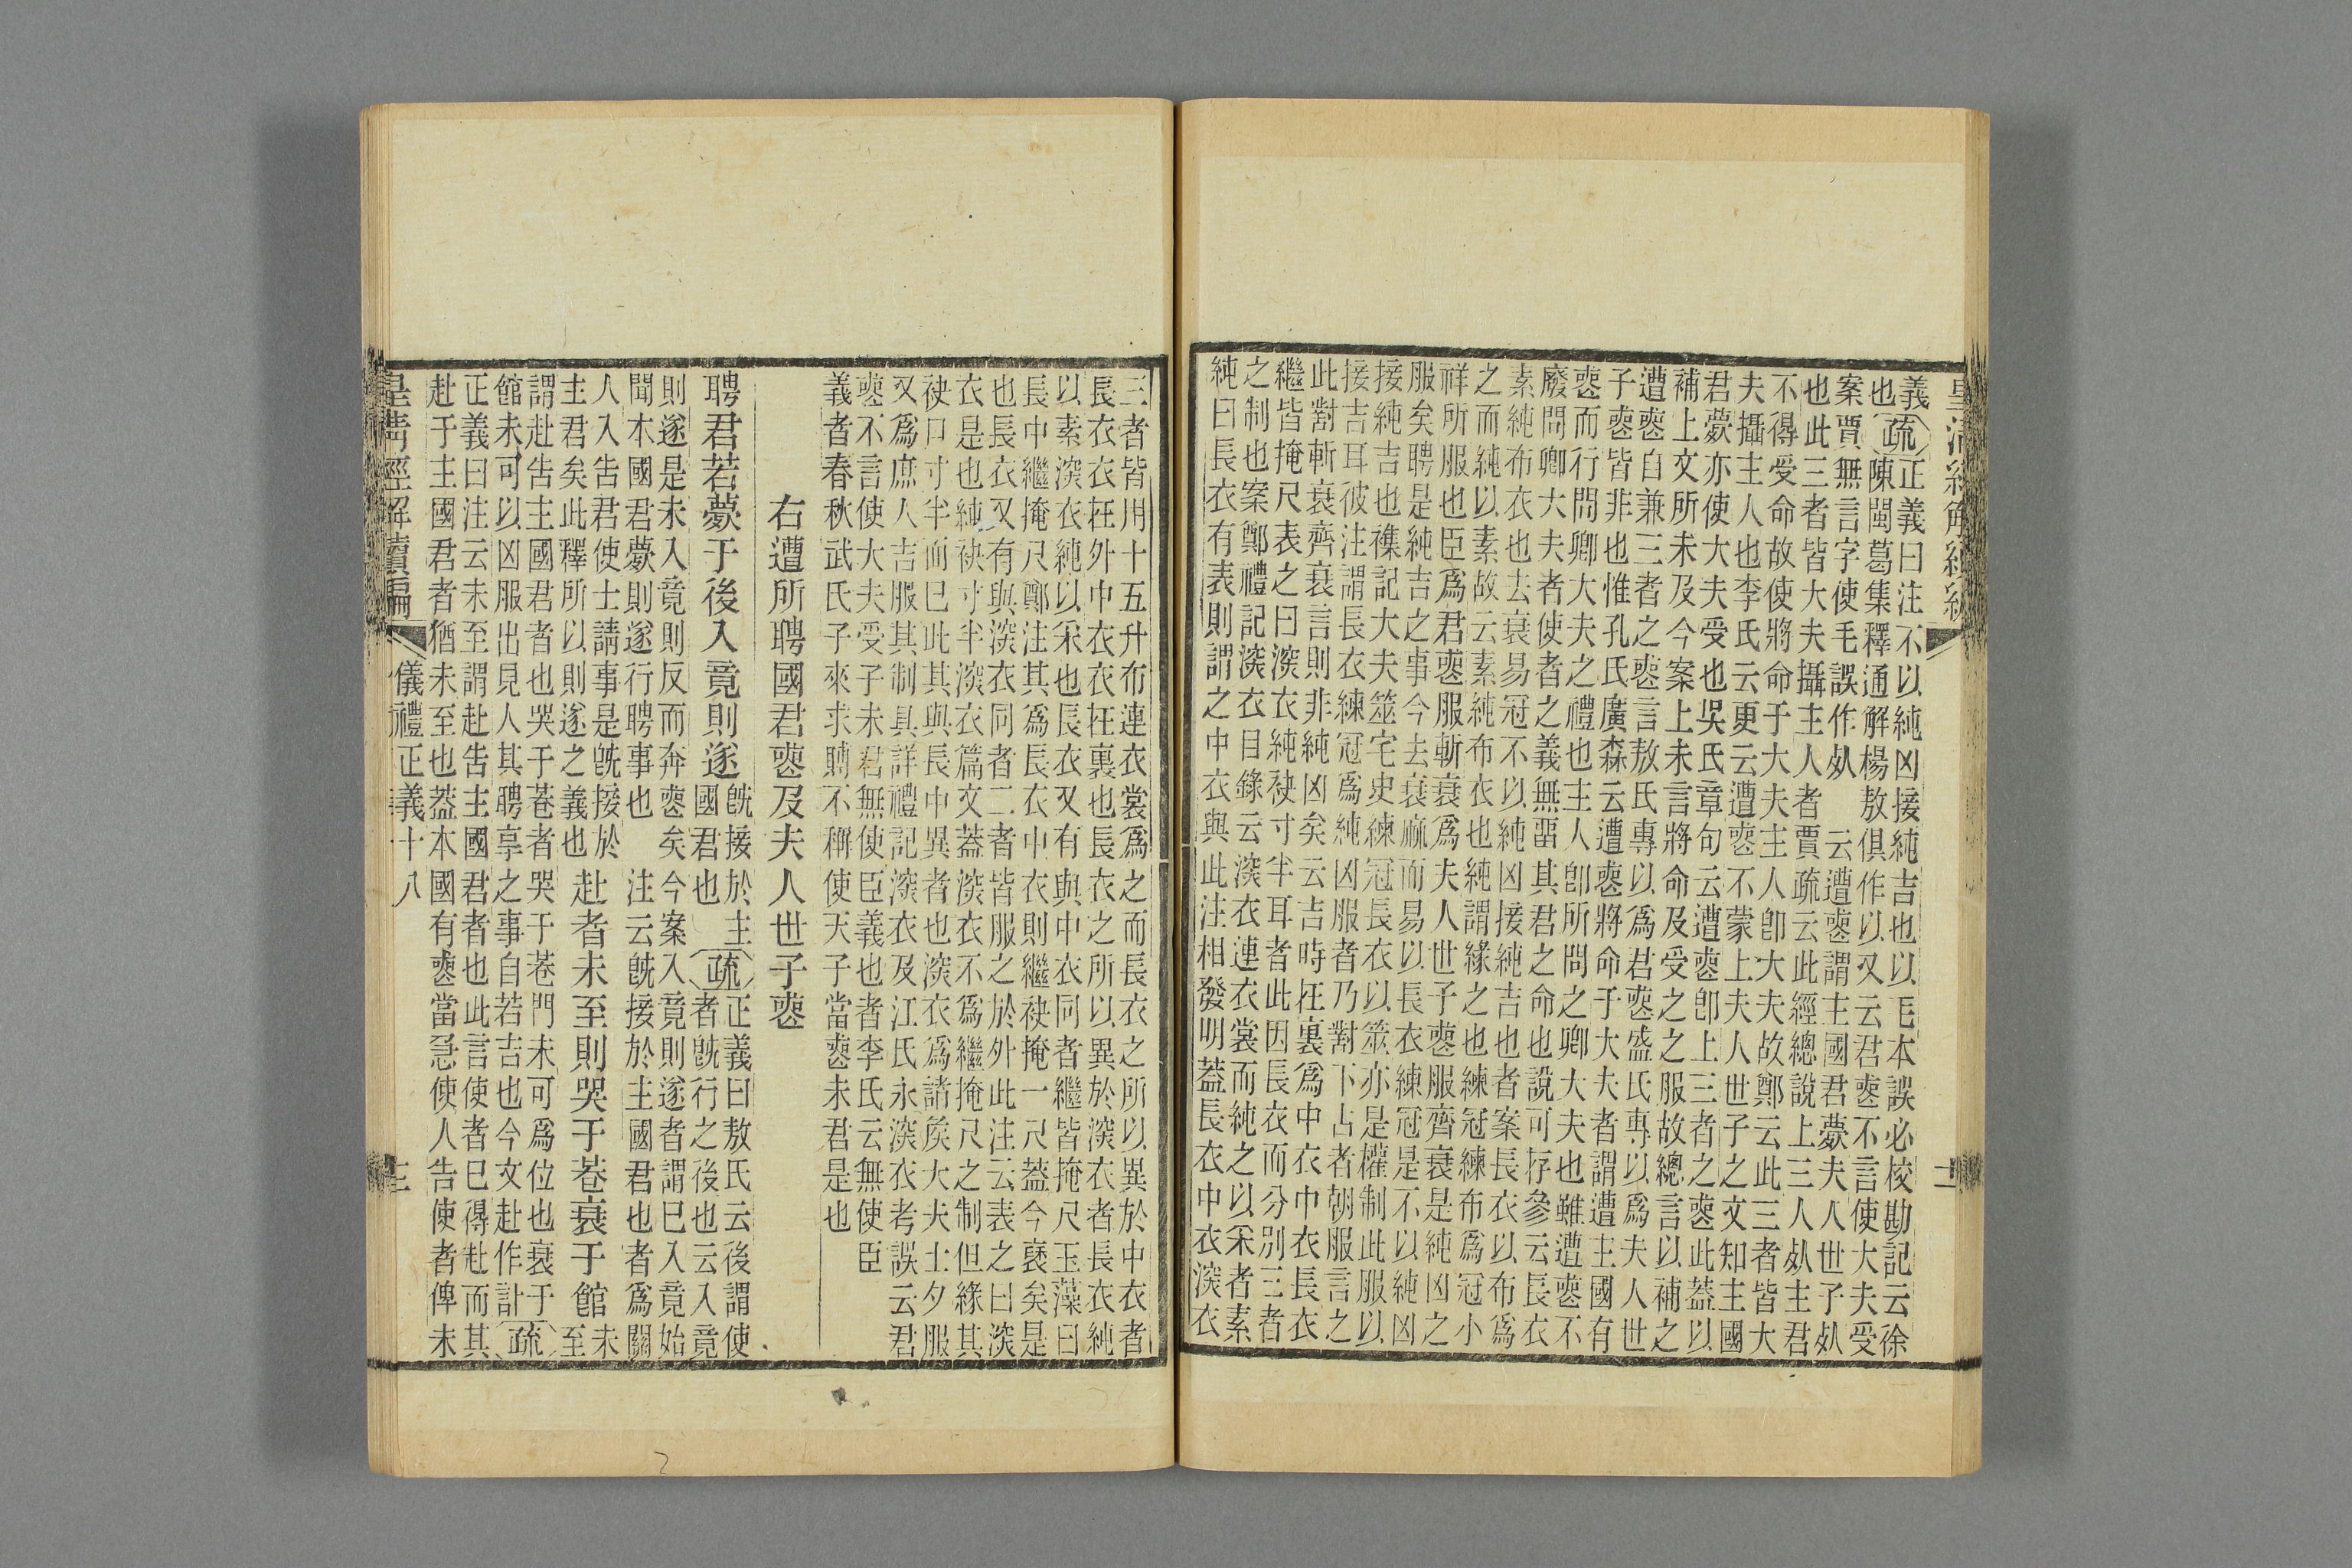 皇清經解續編
義正義曰注不以純凶接純吉也以毛本誤必校勘記云徐
也疏陳閩葛集釋通解楊敖俱作以又云君喪不言使大夫受
案賈無言字使毛誤作㕥 云遭喪謂主國君薨夫人世子㕥
也此三者皆大夫攝主人者賈疏云此經總說上三人㕥主君
不得受命故使將命于大夫主人卽大夫故鄭云此三者皆大
夫攝主人也李氏云更云遭喪不蒙上夫人世子之文知主國
君薨亦使大夫受也吳氏章句云遭喪卽上三者之喪此蓋以
補上文所未及今案上未言將命及受之之服故總言以補之
遭喪自兼三者之喪言敖氏專以爲君喪盛氏專以爲夫人世
子喪皆非也惟孔氏廣森云遭喪將命于大夫者謂遭主國有
喪而行問卿大夫之禮也主人卽所問之卿大夫也雖遭喪不
廢問卿大夫者使者之義無畱其君之命也說可存參云長衣
素純布衣也去衰易冠不以純凶接純吉也者案長衣以布爲
之而純以素故云素純布衣也純謂緣之也練冠練布爲冠小
祥所服也臣爲君喪服斬衰爲夫人世子喪服齊衰是純凶之
服矣聘是純吉之事今去衰麻而易以長衣練冠是不以純凶
接純吉也襍記大夫筮宅史練冠長衣以筮亦是權制此服以
接吉耳彼注謂長衣練冠爲純凶服者乃對下占者朝服言之
此對斬衰齊衰言則非純凶矣云吉時在裏爲中衣中衣長衣
繼皆掩尺表之曰深衣純袂寸半耳者此因長衣而分別三者
之制也案鄭禮記深衣目錄云深衣連衣裳而純之以采者素
純曰長衣有表則謂之中衣與此注相發明蓋長衣中衣深衣
三者皆用十五升布連衣裳爲之而長衣之所以異於中衣者
長衣衣在外中衣衣在裏也長衣之所以異於深衣者長衣純
以素深衣純以采也長衣又有與中衣同者繼皆掩尺玉藻曰
長中繼掩尺鄭注其爲長衣中衣則繼袂掩一尺蓋今褎矣是
也長衣又有與深衣同者二者皆服之於外此注云表之曰深
衣是也純袂寸半深衣篇文蓋深衣不爲繼掩尺之制但緣其
袂口寸半而已此其與長中異者也深衣爲諸矦大夫士夕服
又爲庶人吉服其制具詳禮記深衣及江氏永深衣考誤云君
喪不言使大夫受子未君無使臣義也者李氏云無使臣
義者春秋武氏子來求賻不稱使天子當喪未君是也
右遭所聘國君喪及夫人世子喪
聘君若薨于後入竟則遂旣接於主
國君也疏正義曰敖氏云後謂使
者旣行之後也云入竟
則遂是未入竟則反而奔喪矣今案入竟則遂者謂已入竟始
聞本國君薨則遂行聘事也 注云旣接於主國君也者爲關
人入告君使士請事是旣接於
主君矣此釋所以則遂之義也赴者未至則哭于巷衰于館未
至
謂赴告主國君者也哭于巷者哭于巷門未可爲位也衰于
館未可以凶服出見人其聘享之事自若吉也今文赴作訃疏
正義曰注云未至謂赴告主國君者也此言使者已得赴而其
赴于主國君者猶未至也蓋本國有喪當急使人告使者俾未
皇淸經解續編
儀禮正義十八